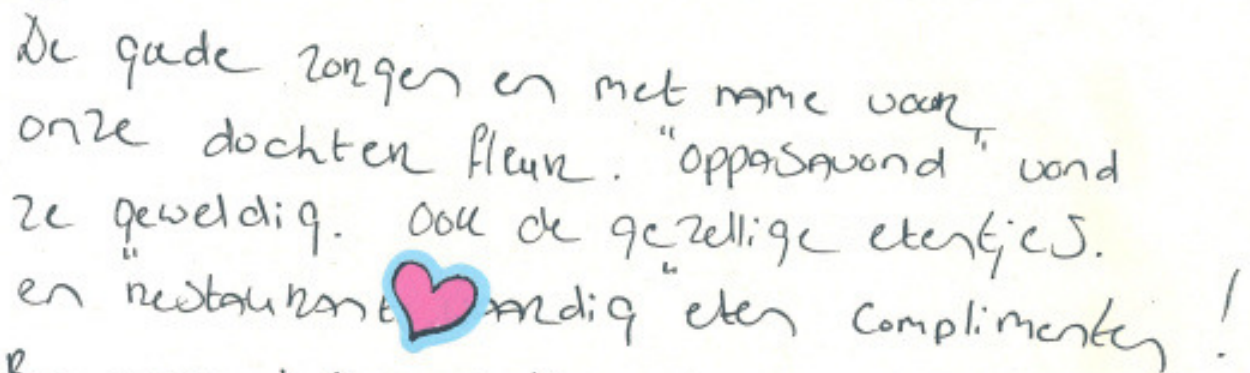 De goede zorgen en met name voor
onze dochter Fleur. "oppasavond" vond
ze geweldig. Ook de gezellige etentjes.
en "restaurant aardig" eten Complimenten!